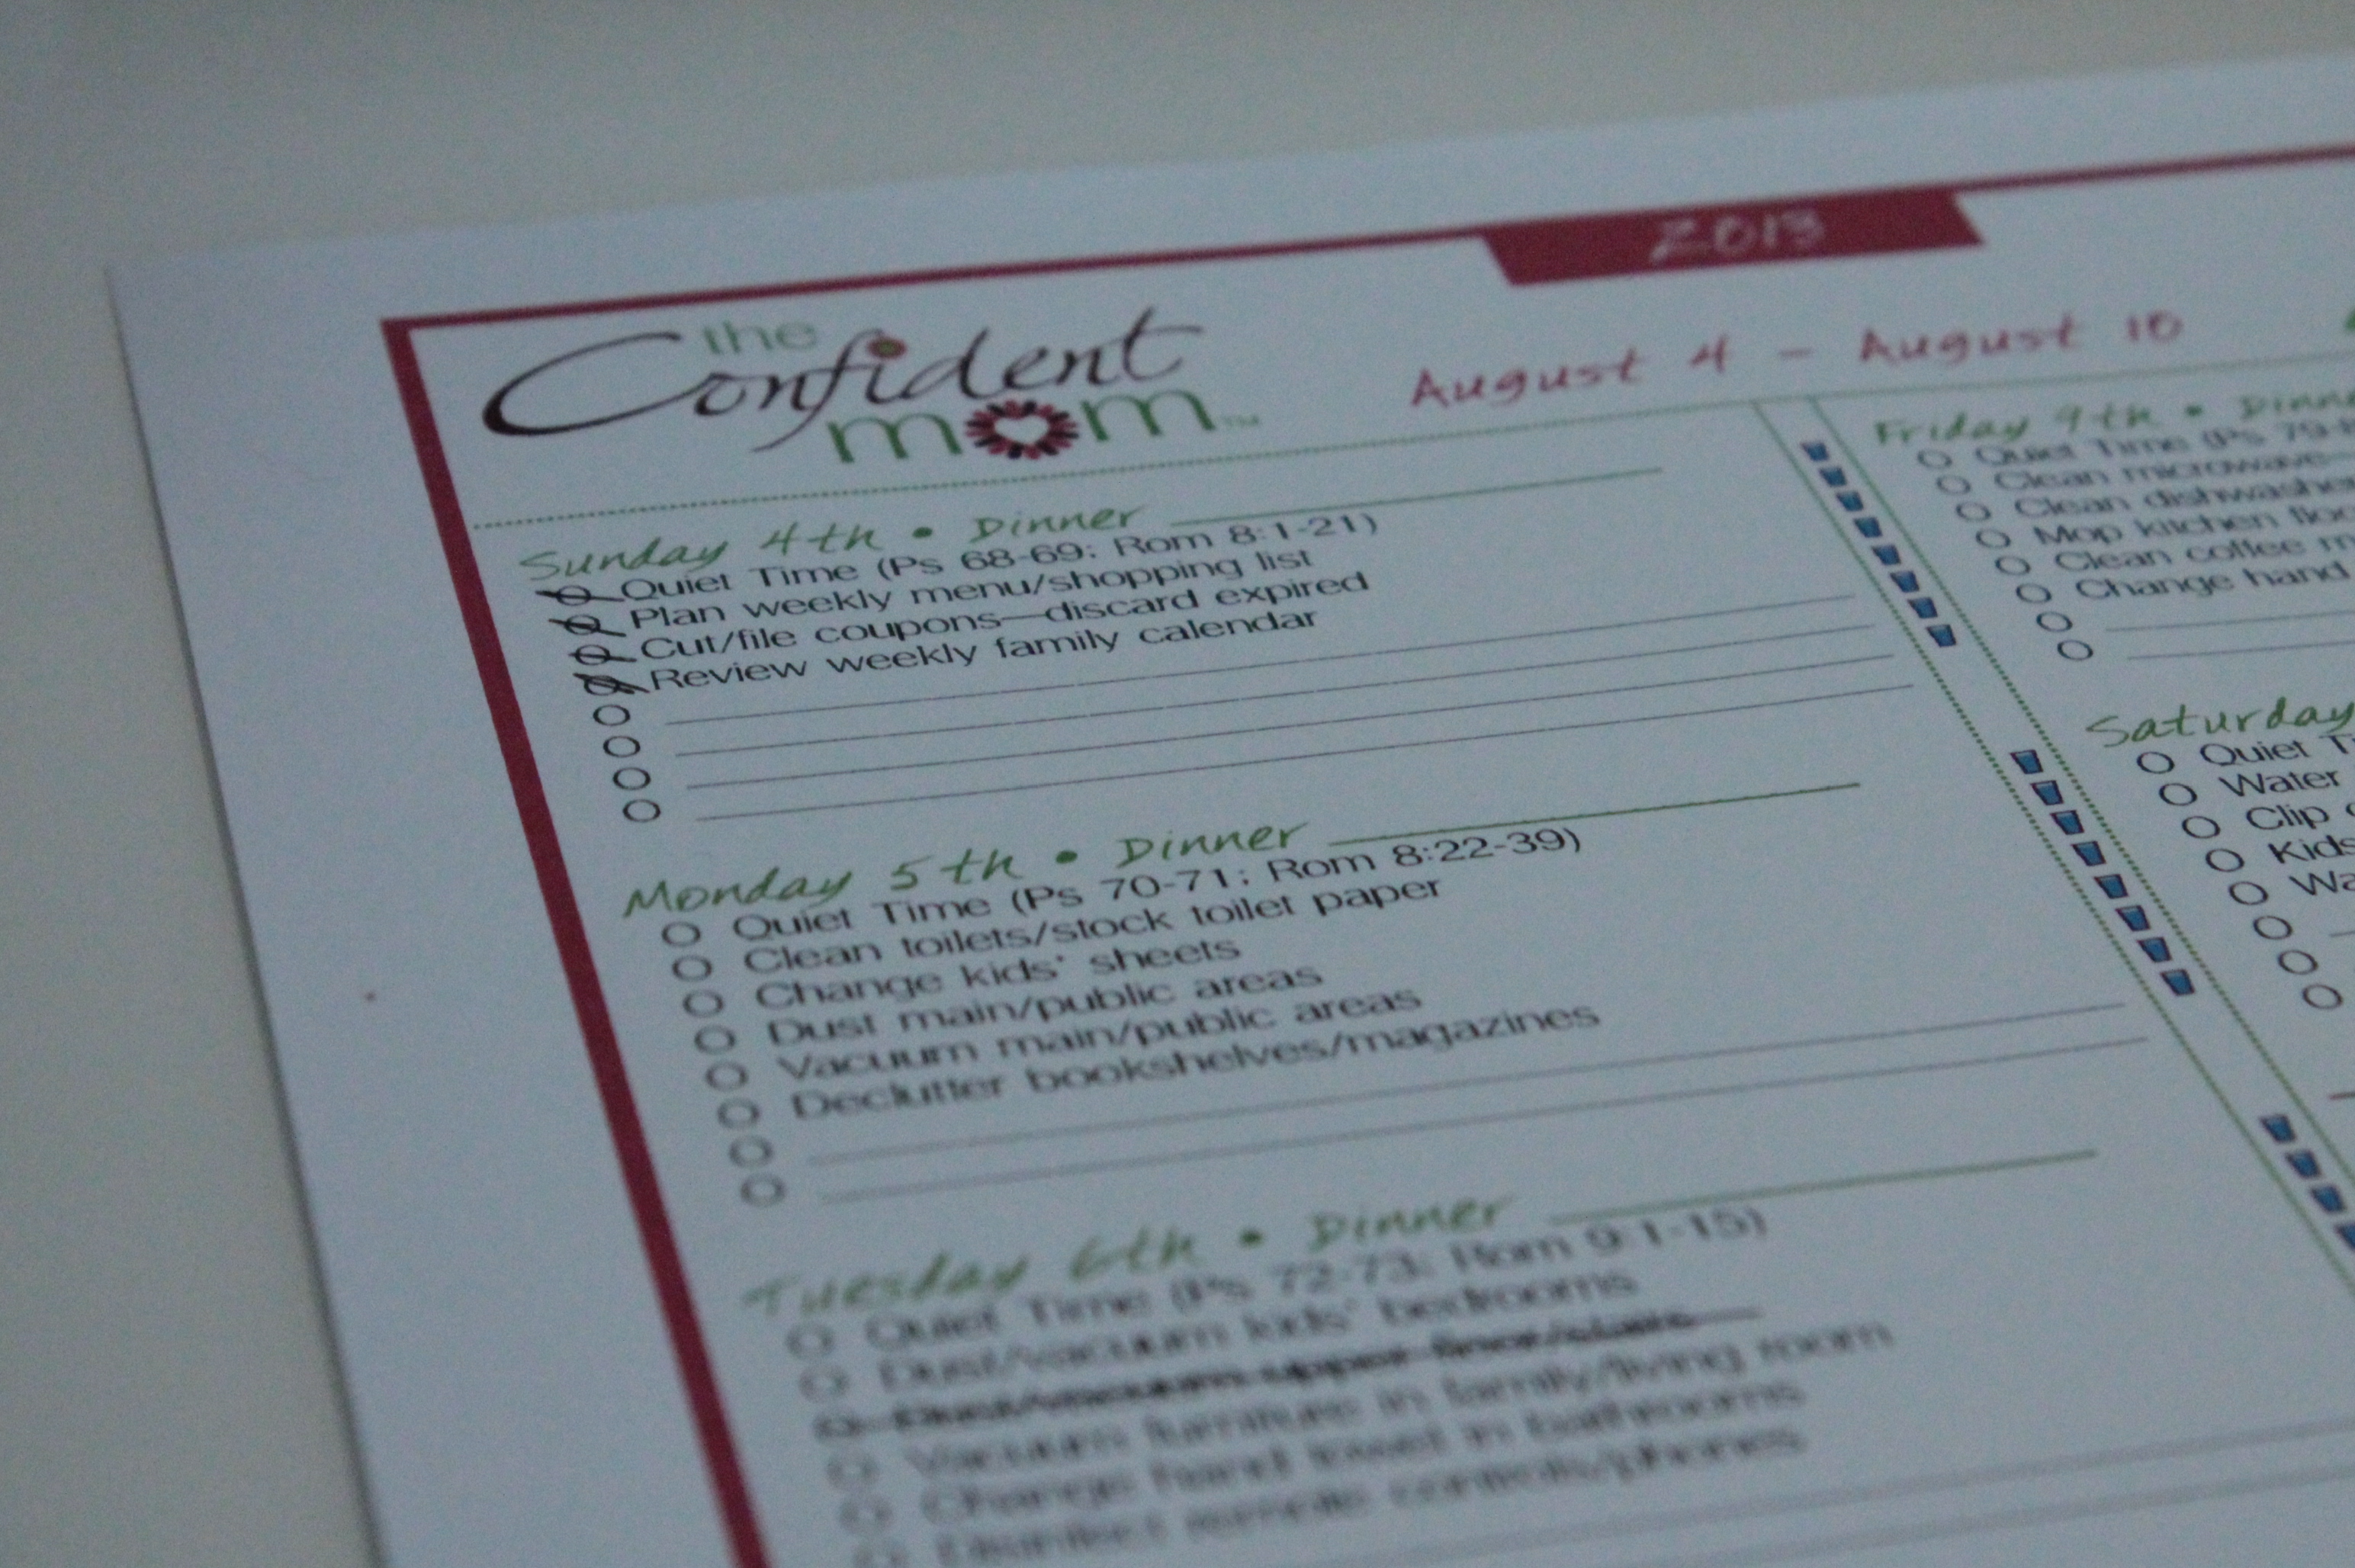 2013
the
Confident
mom™
August 4 - August 10
Sunday 4th • Dinner
Quiet Time (Ps 68-69; Rom 8:1-21)
Plan weekly menu/shopping list
Cut/file coupons—discard expired
Review weekly family calendar
Monday 5th • Dinner
Quiet Time (Ps 70-71; Rom 8:22-39)
Clean toilets/stock toilet paper
Change kids' sheets
Dust main/public areas
Vacuum main/public areas
Declutter bookshelves/magazines
Tuesday 6th • Dinner
Quiet Time (Ps 72-73; Rom 9:1-15)
Dust/vacuum kids' bedrooms
Dust/vacuum upper floor/stairs
Vacuum furniture in family/living room
Change hand towel in bathrooms
Disinfect remote controls/phones
Friday 9th •
Quiet Time (Ps
Clean microwave—
Clean
Mop kitchen
Clean coffee
Change hand
Saturday
Quiet
Water
Clip
Kids